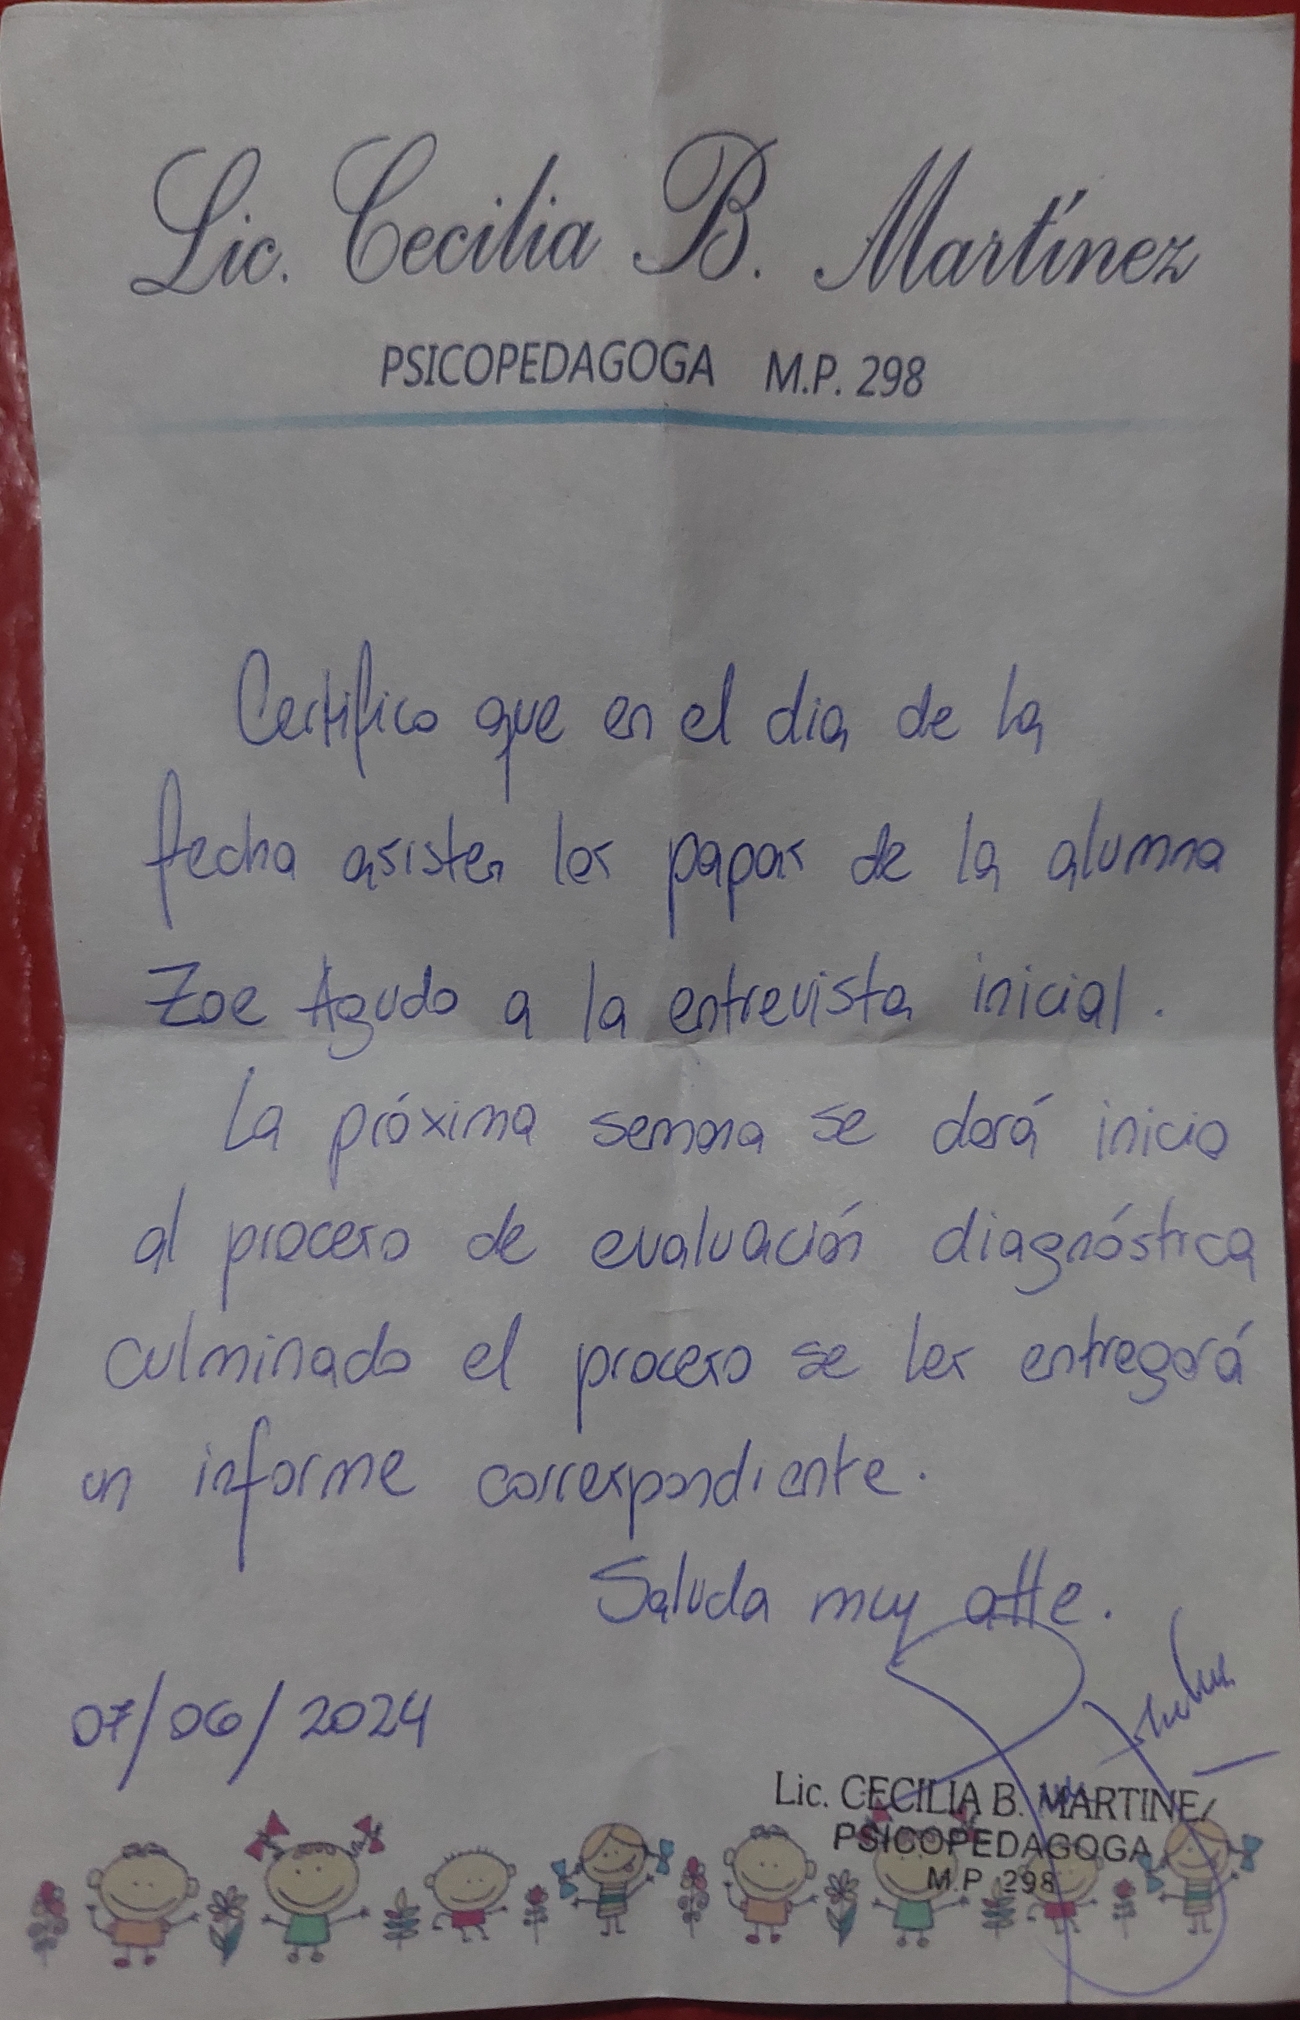 Lic. Cecilia B. Martínez
PSICOPEDAGOGA M.P. 298
Certifico que en el dia de la
fecha asisten los papas de la alumna
Zoe Agudo a la entrevista inicial.
La próxima semana se dará inicio
al proceso de evaluación diagnóstica
culminado el proceso se les entregará
un informe correspondiente.
Saluda muy atte.
07/06/2024
Lic. CECILIA B. MARTINEZ
PSICOPEDAGOGA
M.P. 298